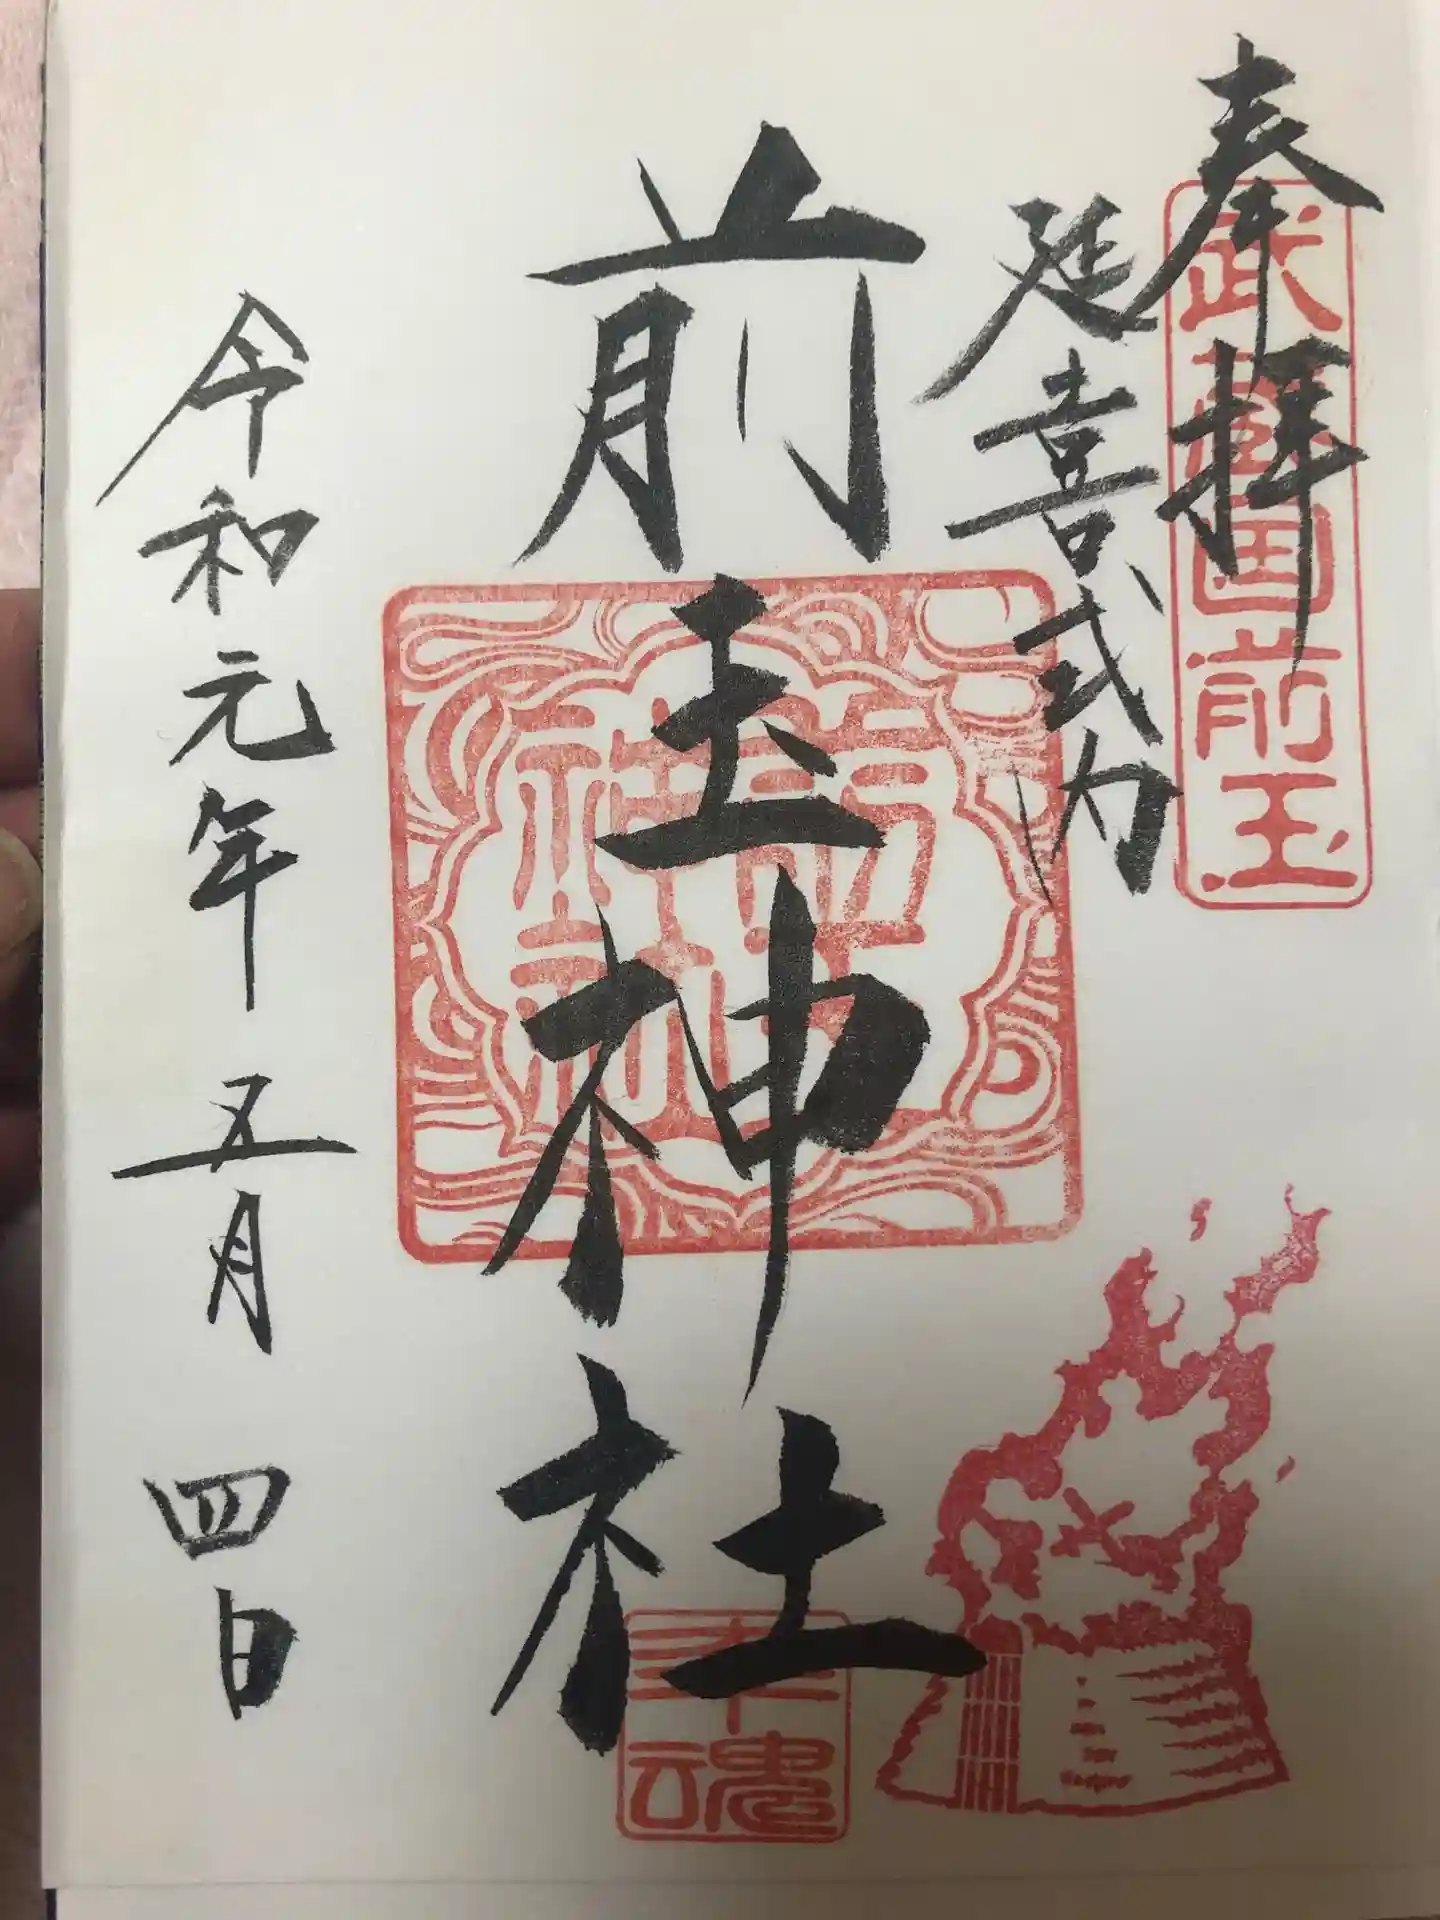 奉拝
武蔵国前玉
延喜式内
前玉神社
前玉神社
令和元年五月四日
幸魂